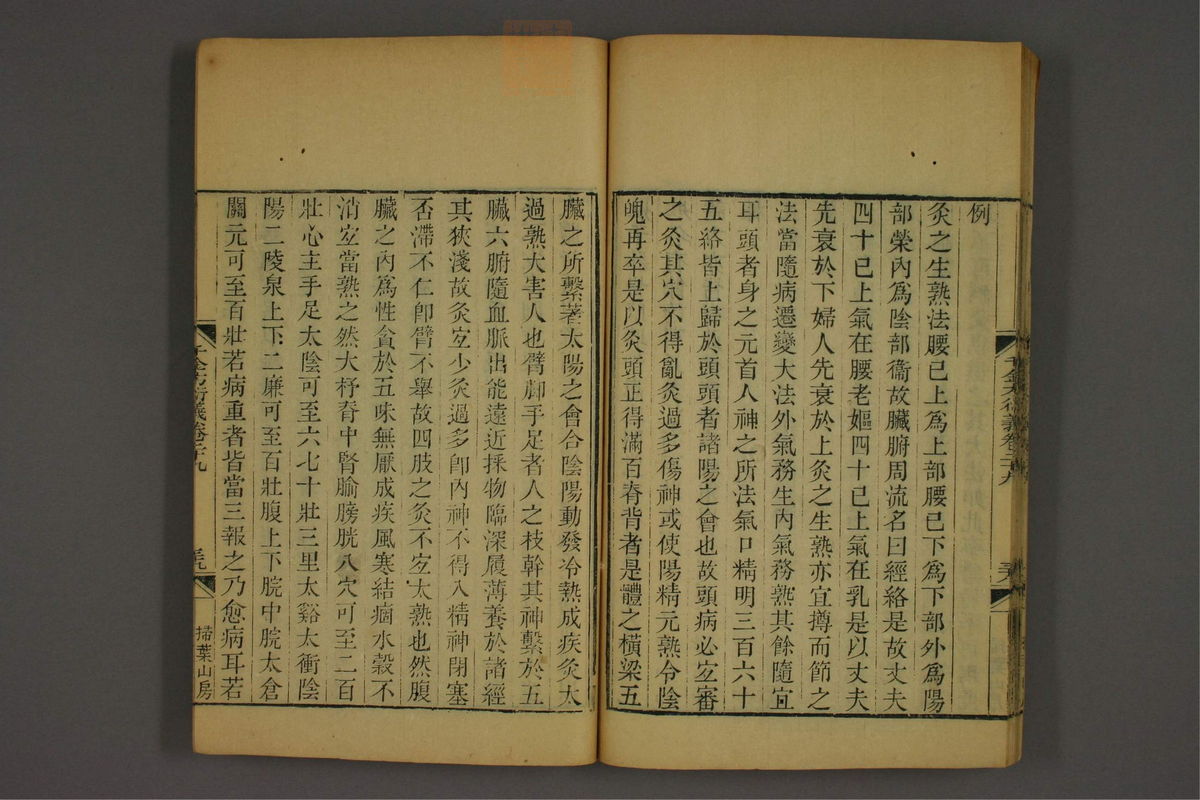 例
灸之生熟法腰已上爲上部腰已下爲下部外爲陽
部榮內爲陰部衞故臟腑周流名曰經絡是故丈夫
四十已上氣在腰老嫗四十已上氣在乳是以丈夫
先衰於下婦人先衰於上灸之生熟亦宜撙而節之
法當隨病遷變大法外氣務生內氣務熟其餘隨宜
耳頭者身之元首人神之所法氣口精明三百六十
五絡皆上歸於頭頭者諸陽之會也故頭病必宐審
之灸其穴不得亂灸過多傷神或使陽精元熟令陰
魄再卒是以灸頭正得滿百脊背者是體之橫梁五
臟之所繫著太陽之會合陰陽動發冷熱成疾灸太
過熟大害人也臂脚手足者人之枝幹其神繫於五
臟六腑隨血脈出能遠近採物臨深履薄養於諸經
其狹淺故灸宐少灸過多卽內神不得入精神閉塞
否滯不仁卽臂不舉故四肢之灸不宐太熟也然腹
臟之內爲性貪於五味無厭成疾風寒結痼水穀不
消宐當熟之然大杼脊中腎腧膀胱八穴可至二百
壯心主手足太陰可至六七十壯三里太谿太衝陰
陽二陵泉上下二廉可至百壯腹上下脘中脘太倉
關元可至百壯若病重者皆當三報之乃愈病耳若
千金方衍義卷二十九
掃葉山房